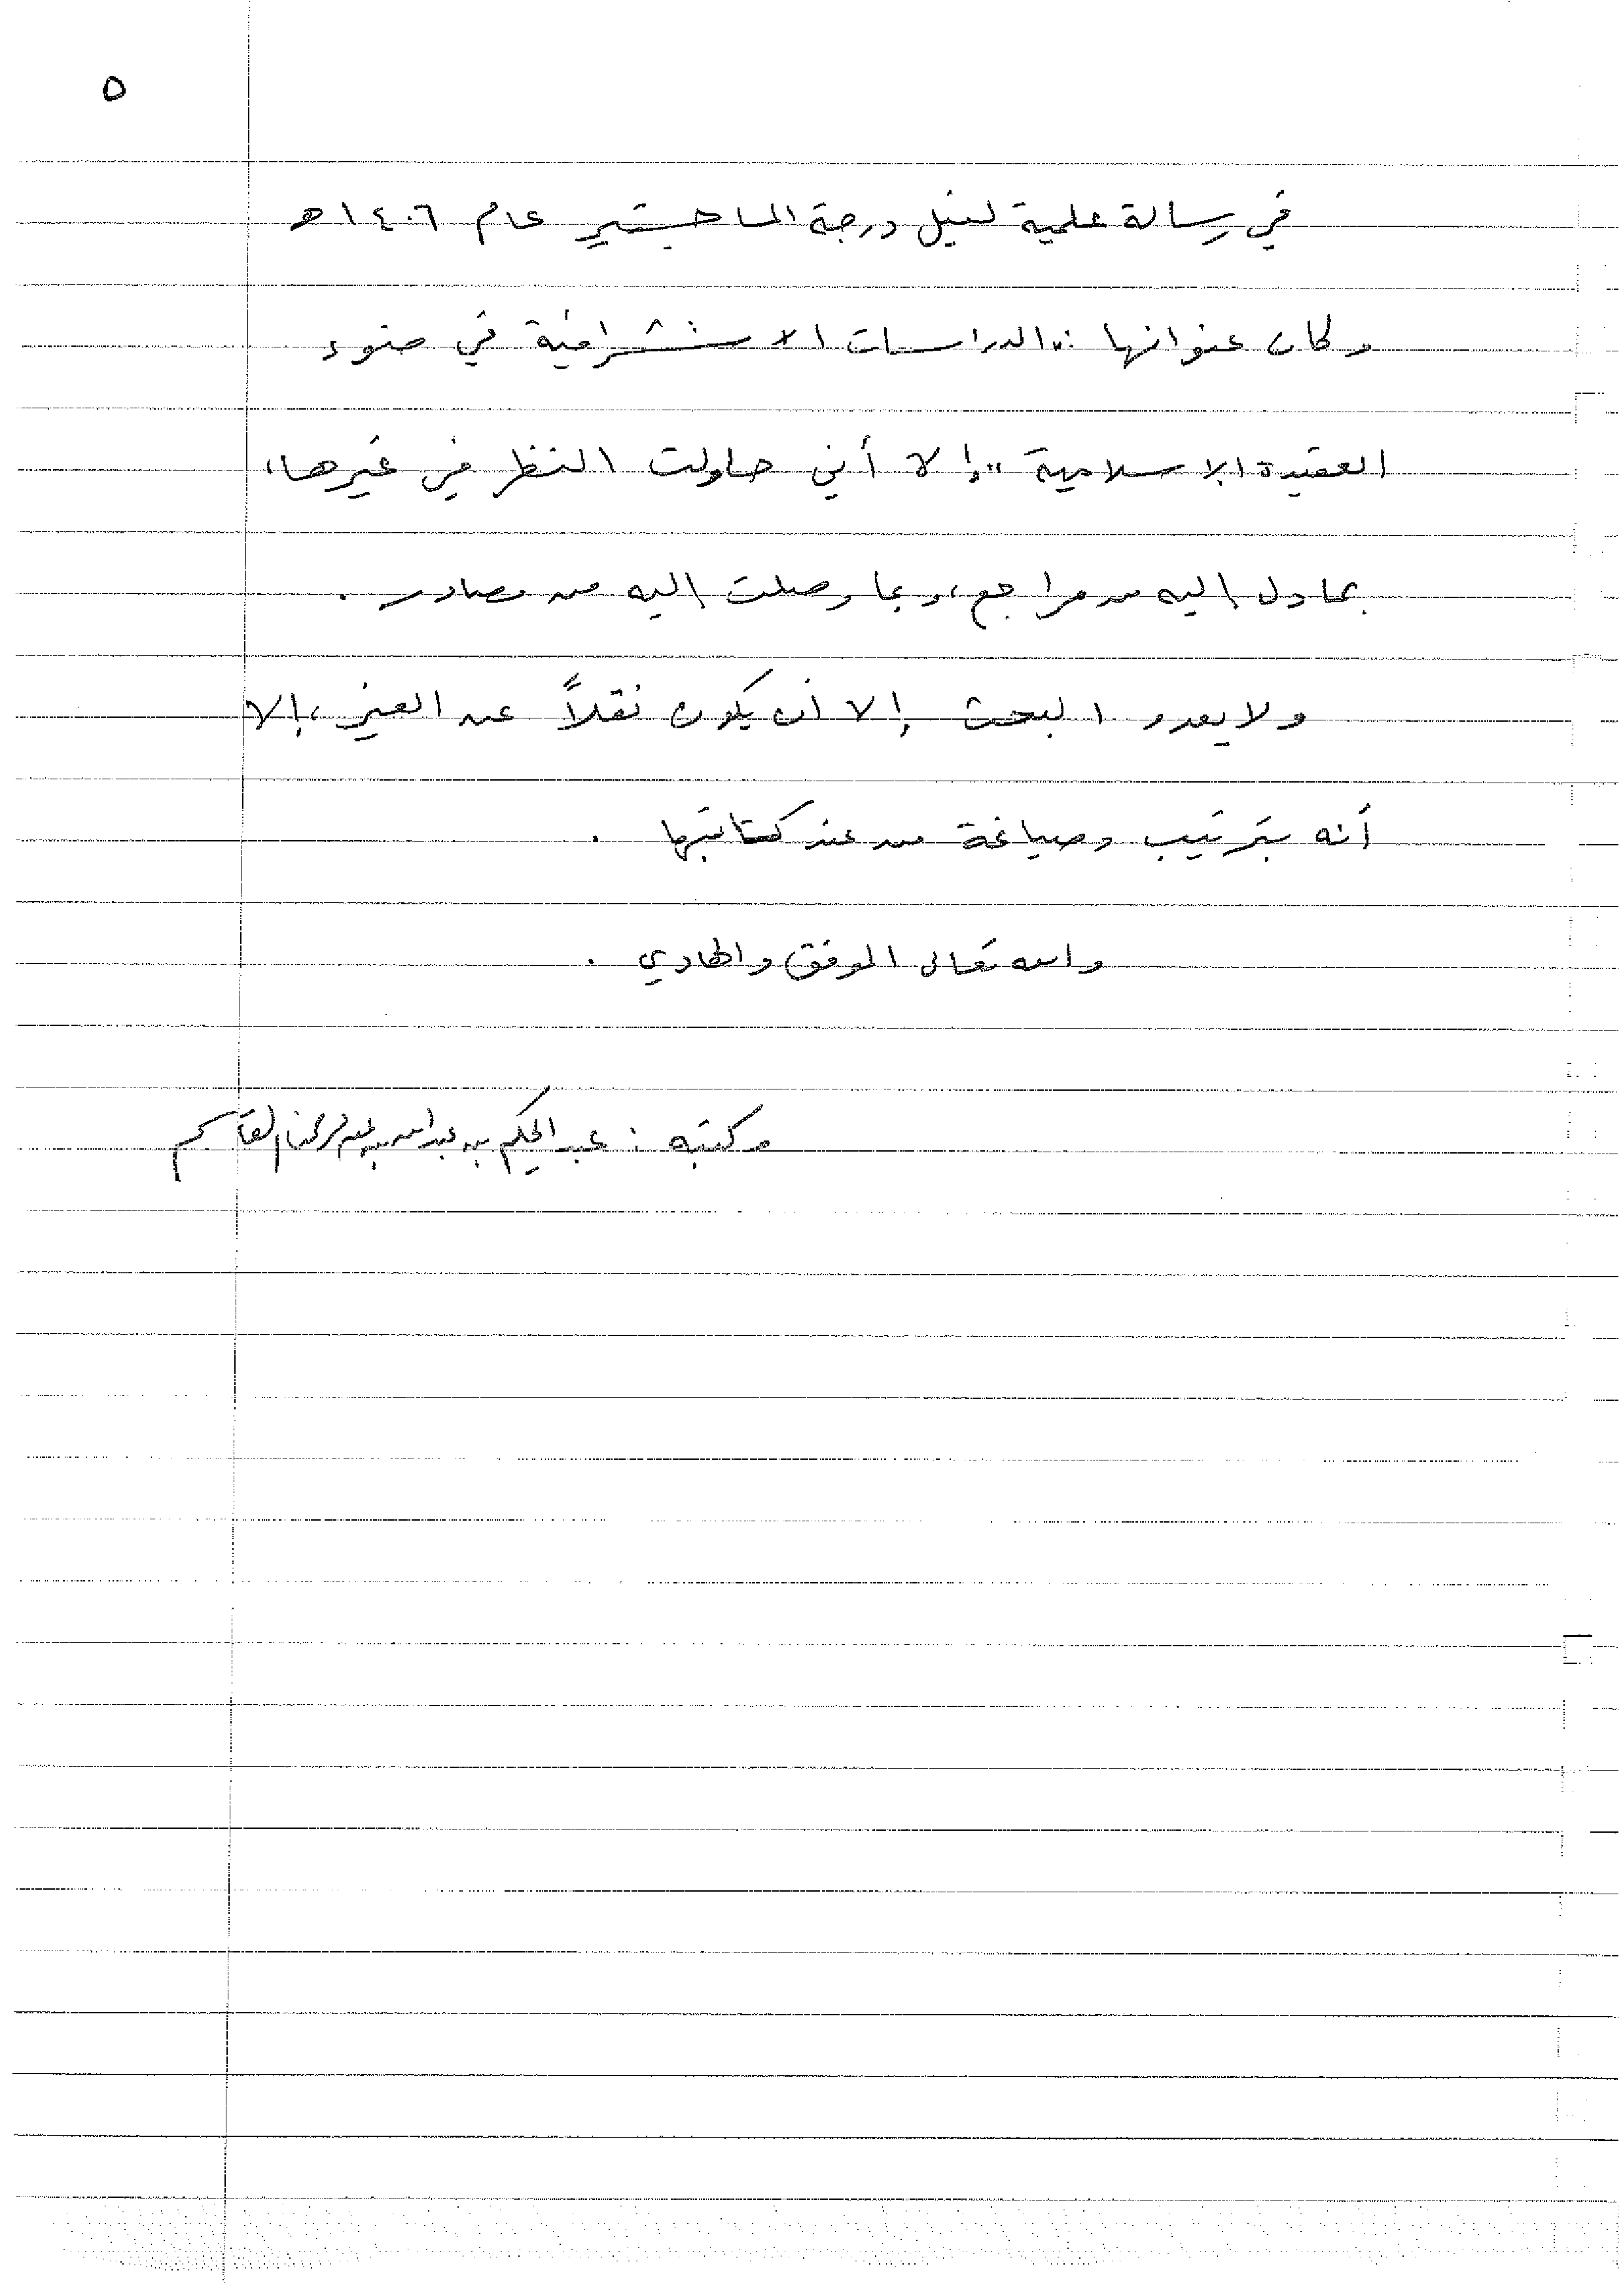 ٥
في رسالة علمية لنيل درجة الماجستير عام ١٤٠٦ هـ
وكان عنوانها : "الدراسات الاستشراقية في ضوء
العقيدة الإسلامية" إلا أني حاولت النظر في غيرها،
بما دل إليه من مراجع، وبما وصلت إليه من مصادر .
ولا يعدو البحث إلا أن يكون نقلاً عن الغير، إلا
أنه بترتيب وصياغة من عند كتابتها .
والله تعالى الموفق والهادي .
وكتبه : عبد الحكيم بن عبد الله بن عبد الرحمن القاسم